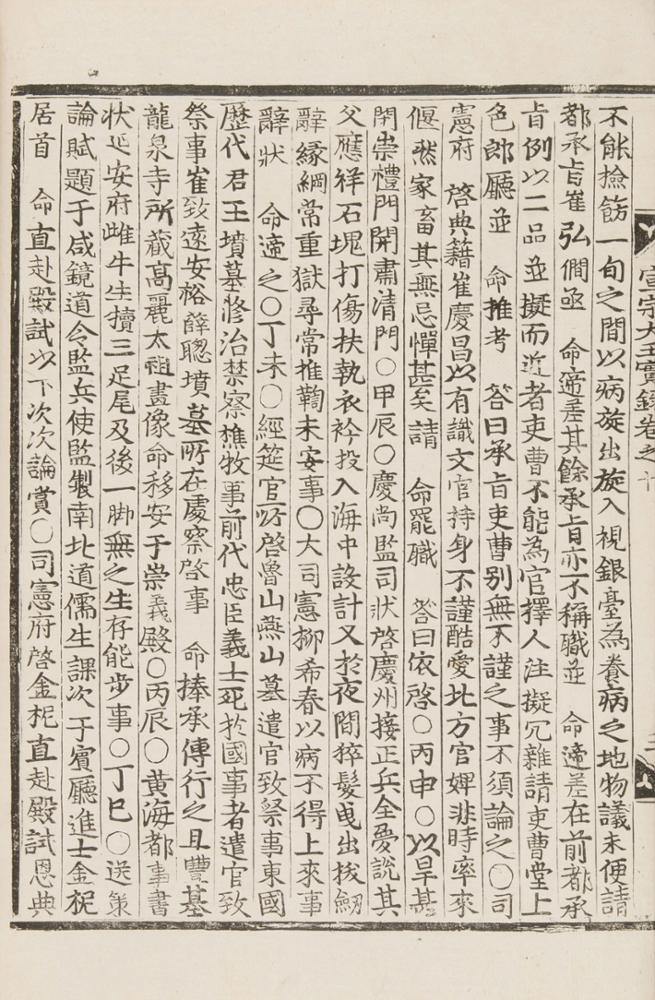 宣宗大王實錄卷之十
不能撿飭一旬之間以病旋出旋入視銀臺為養病之地物議未便請
都承旨崔弘僩亟 命遞差其餘承旨亦不稱職並 命遞差在前都承
旨例以二品並擬而近者吏曹不能為官擇人注擬冗雜請吏曹堂上
色郎廳並 命推考 答曰承旨吏曹別無不謹之事不須論之○司
憲府 啓典籍崔慶昌以有識文官持身不謹酷愛北方官婢非時率來
偃然家畜其無忌憚甚矣請 命罷職 答曰依啓○丙申○以旱甚
閉崇禮門開肅清門○甲辰○慶尚監司狀啓慶州接正兵全憂說其
父應祥石塊打傷扶執衣衿投入海中設計又於夜間猝髮曳出拔劒
辭緣綱常重獄尋常推鞫未安事○大司憲柳希春以病不得上來事
辭狀 命遞之○丁未○經筵官所啓魯山燕山墓遣官致祭事東國
歷代君王墳墓修治禁察樵牧事前代忠臣義士死於國事者遣官致
祭事崔致遠安裕薛聰墳墓所在處察啓事 命捧承傳行之且豐基
龍泉寺所藏高麗太祖畫像命移安于崇義殿○丙辰○黃海都事書
狀延安府雌牛生犢三足尾及後一脚無之生存能步事○丁巳○送策
論賦題于咸鏡道令監兵使監製南北道儒生課次于賓廳進士金柅
居首 命直赴殿試以下次次論賞○司憲府啓金柅直赴殿試恩典